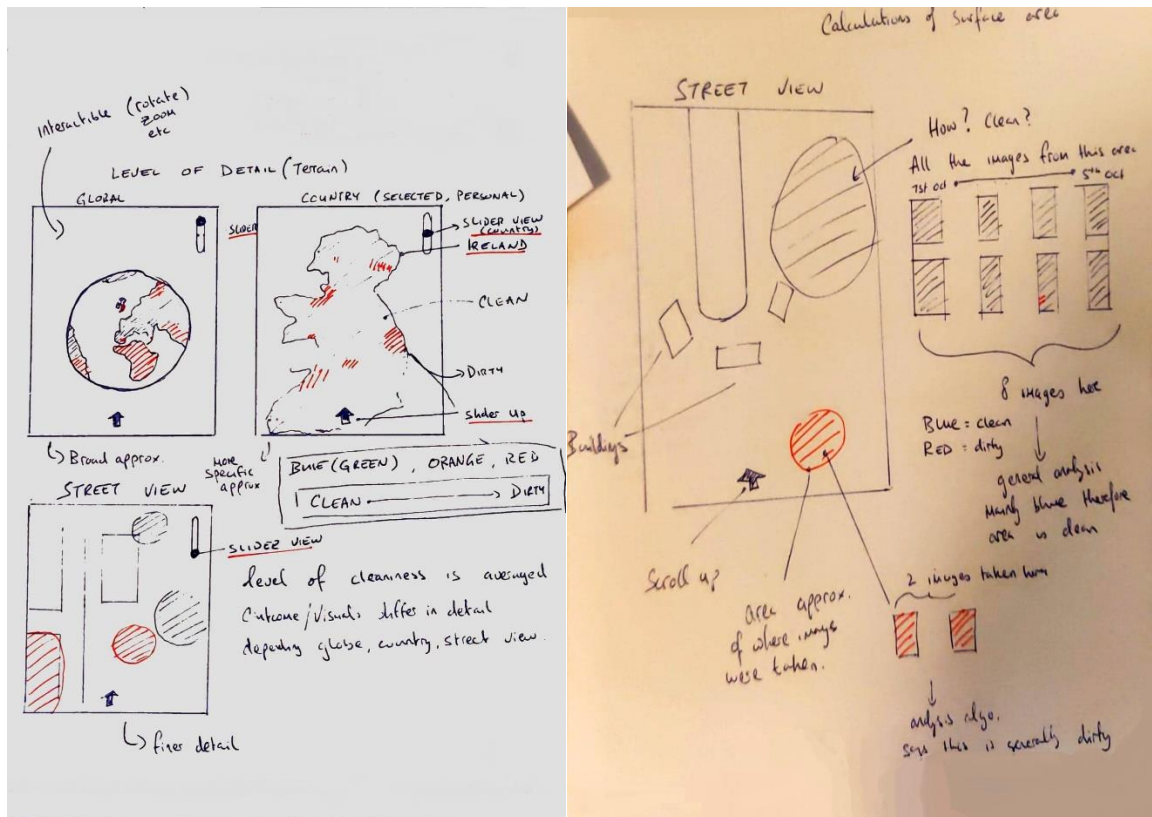 Interactible (rotate)
zoom
etc
LEVEL OF DETAIL (Terrain)
GLOBAL
COUNTRY (SELECTED, PERSONAL)
SLIDER
SLIDER VIEW
(COUNTRY)
IRELAND
CLEAN
DIRTY
Slider up
Broad approx.
More
specific
approx
BLUE (GREEN) , ORANGE , RED
CLEAN DIRTY
STREET VIEW
SLIDER VIEW
level of cleaniness is averaged
Outcome/Visuals differs in detail
depending globe, country, street view.
finer detail
Calculations of Surface area
STREET VIEW
How? Clean?
All the images from this area
1st oct
5th oct
8 images here
Blue = clean
RED = dirty
general analysis
Mainly blue therefore
area is clean
Buildings
Scroll up?
area approx.
of where images
were taken.
2 images taken here
analysis algo.
says this is generally dirty